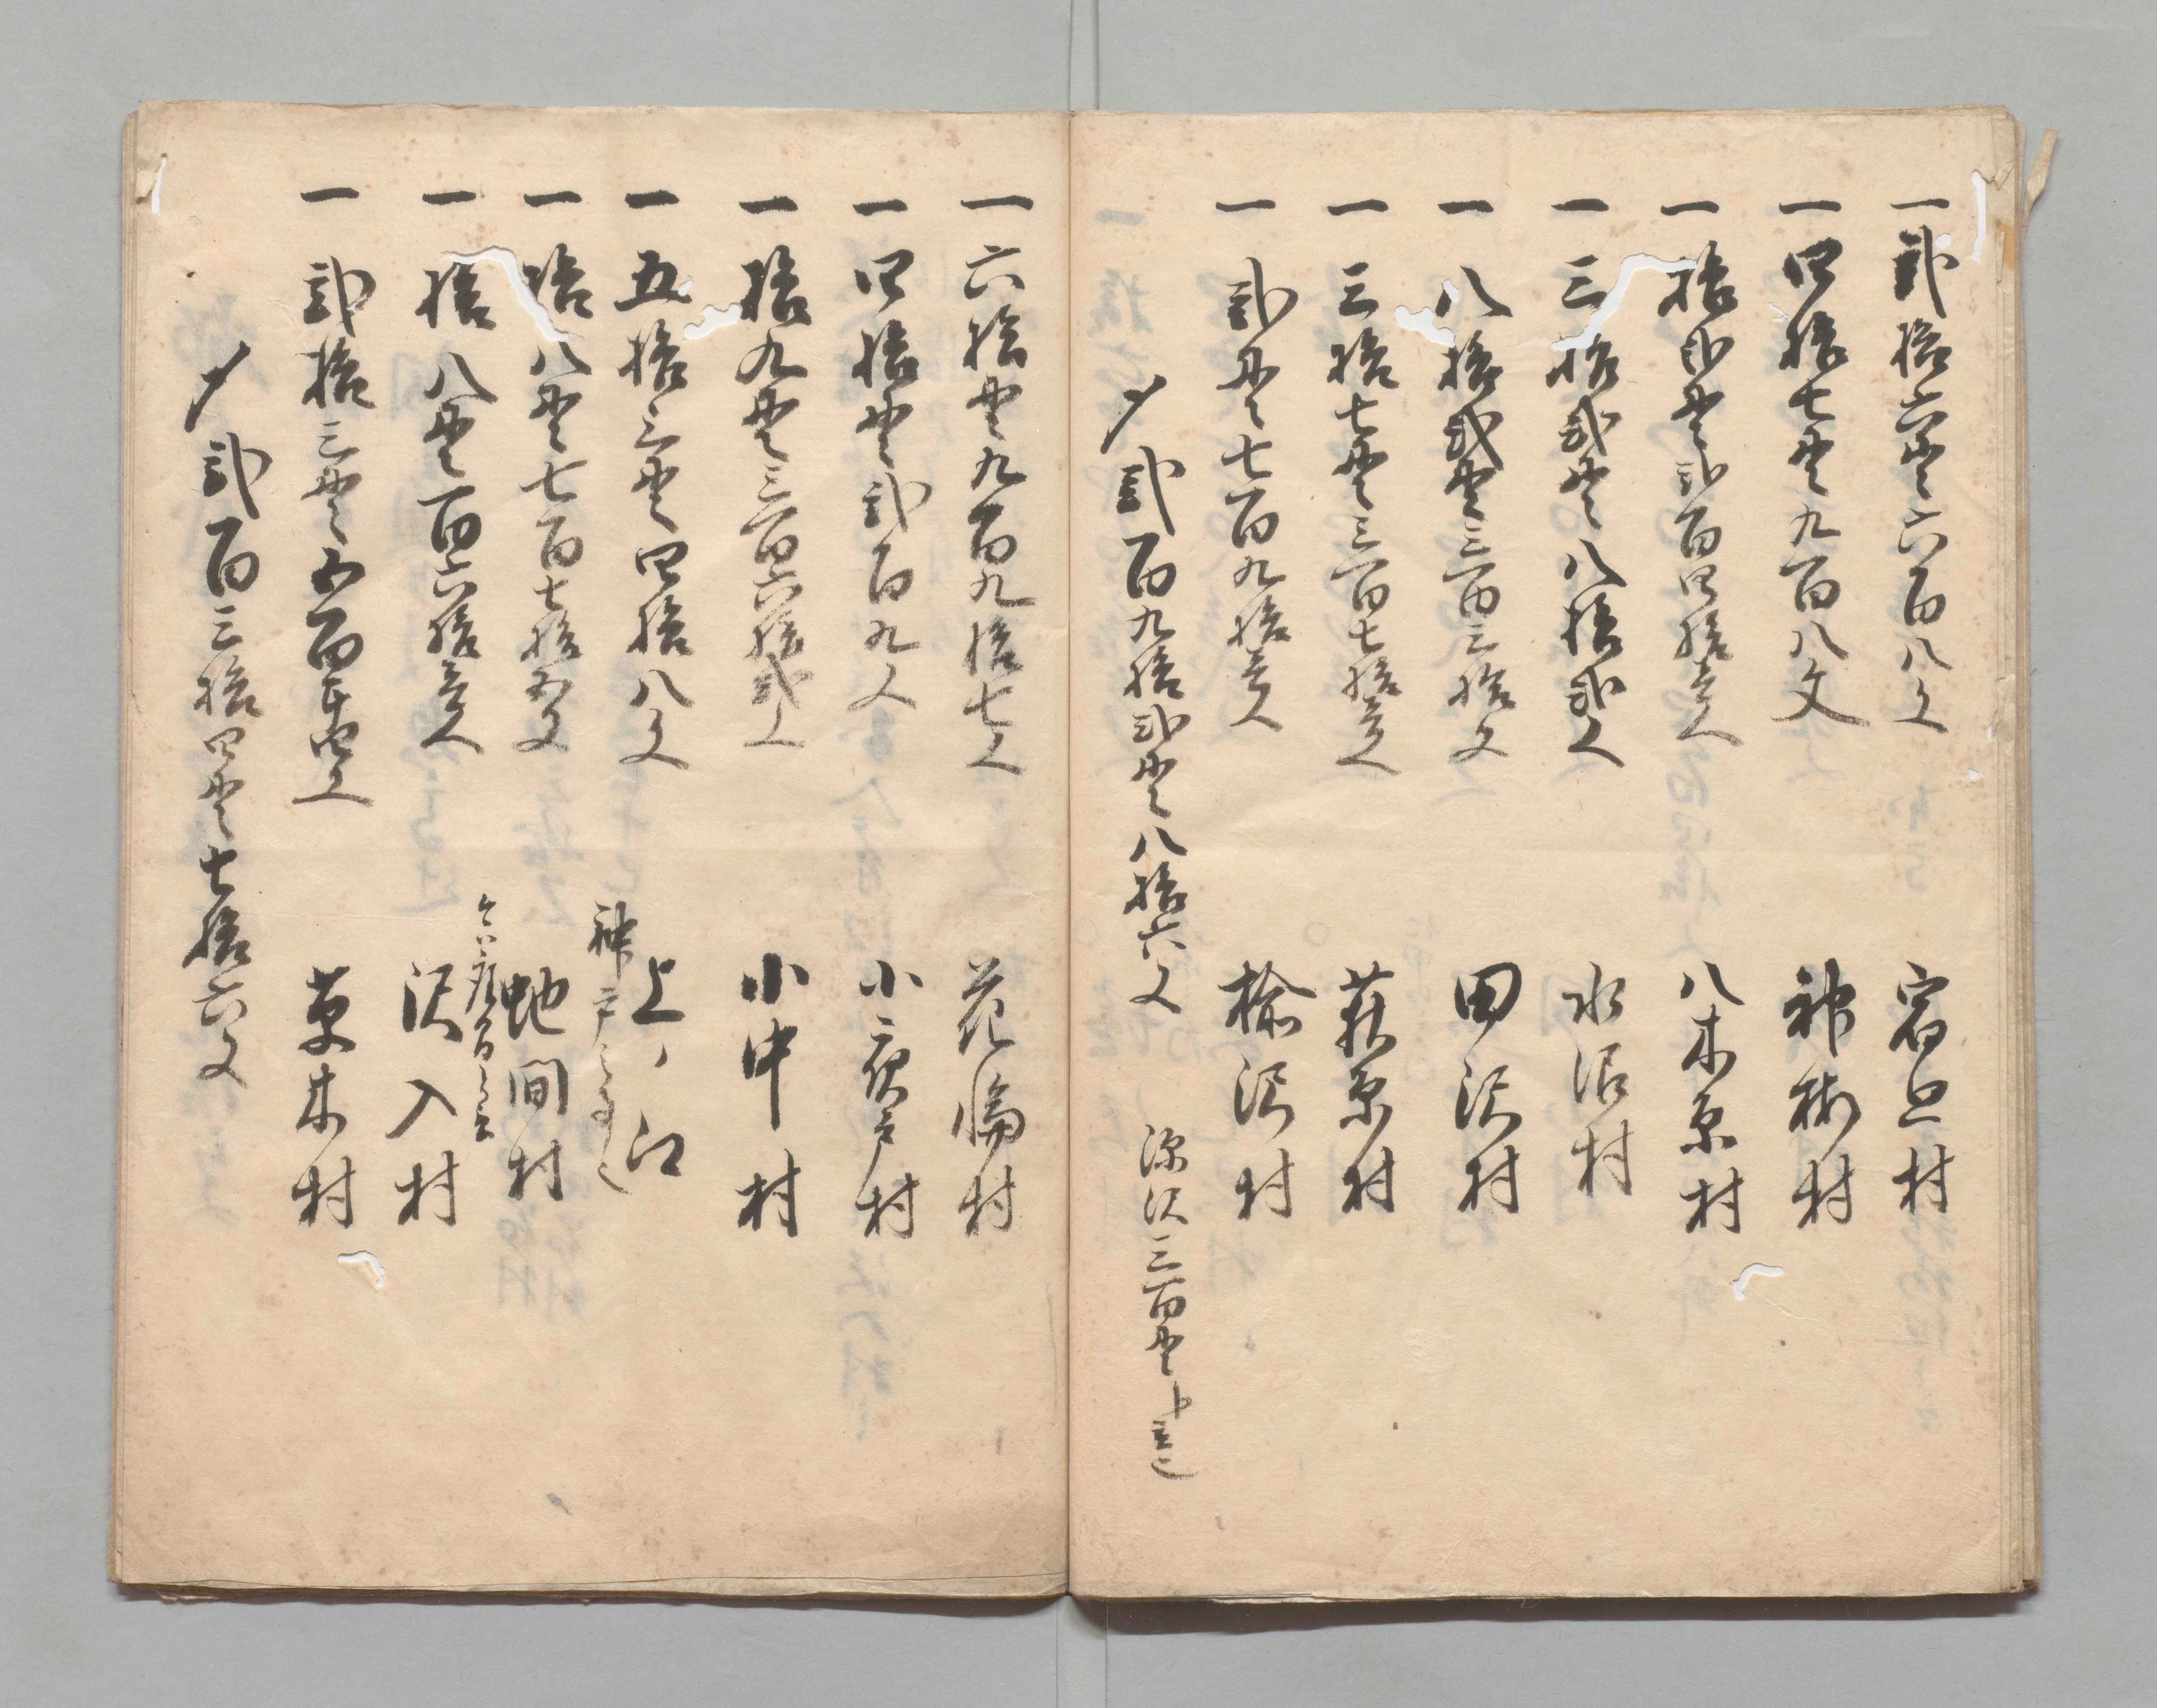 一 弐拾六貫六百八文 宿廻村
一 四拾七貫九百八文 神梅村
一 拾弐貫弐百四拾壱文 八木原村
一 三拾弐貫八拾弐文 水沼村
一 八拾弐貫三百三拾文 田沢村
一 三拾七貫三百七拾壱文 荻原村
一 弐貫七百九拾壱文 楡沢村
〆弐百九拾弐貫八拾六文 深沢三百貫ト云也
一 六拾貫九百九拾七文 花輪村
一 四拾貫弐百九文 小夜戸村
一 拾九貫三百六拾弐文 小中村
一 五拾三貫四拾八文 上ノ江
神戸之事也
一 拾八貫七百七拾五文 虵間村
今ハ座間と云
一 拾八貫百六拾壱文 沢入村
一 弐拾三貫五百廿四文 草木村
〆弐百三拾四貫七拾六文